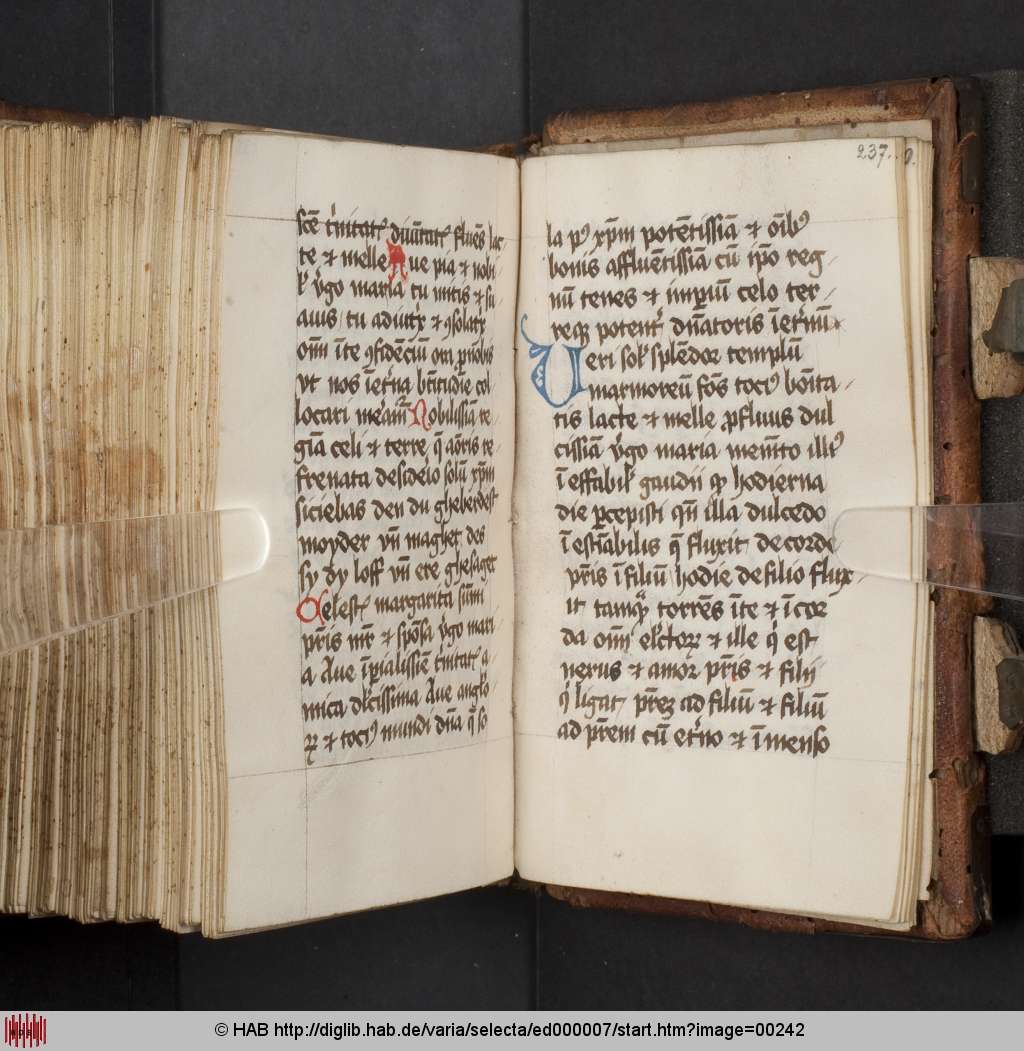 sc̄e t'nitat' diuītat' fluēs lac-
te et melle Aue pia et nobi-
l' v'go maria tu mitis et su
auis / tu adiut'x et ꝯsolat'x
om̄ī ī te ꝯfidēciū ora p' nobis
vt nos ī et'na btītudīe col
locari mer'am' Nobilissīa re
gīa celi et terre q̄ am̄oris re
frenata desid'io solū xp̄m
siciebas den du gheberdest
moyder vn̄ maghet des
sy dy loff vn̄ ere ghesaget
Celest' margarita sūmi
pr̄is mr̄ et spōsa v'go mari
a Aue īp̄ialissīe t'nitat' a-
mica dl'cissima Aue angl'o
ꝝ et toci' mundi dn̄a q̄ so
237.
la p' xp̄m potētissīa et oīb'
bonis affluētissīa cū ip̄o reg-
nū tenes et imp̄iū celo ter-
reqꝫ potent' dn̄atoris ī et'nū
Ueri sol' splēdor templū
marmoreū fōs toci' bōita-
tis lacte et melle ꝓfluus dul
cissīa v'go maria memēto illi'
ī effabil' gaudii qꝫ hodierna
die p̄cepisti qn̄ illa dulcedo
ī estīabilis q̄ fluxit de corde
pr̄is ī filiū hodīe de filio flux-
it tamqꝫ torrēs ī te et ī cor
da om̄ī el'ctoꝝ et ille q' est
nexus et amor pr̄is et filij
q' ligat pr̄eꝫ ad filiū et filiū
ad pr̄em cū et'no et īmenso
© HAB http://diglib.hab.de/varia/selecta/ed000007/start.htm?image=00242